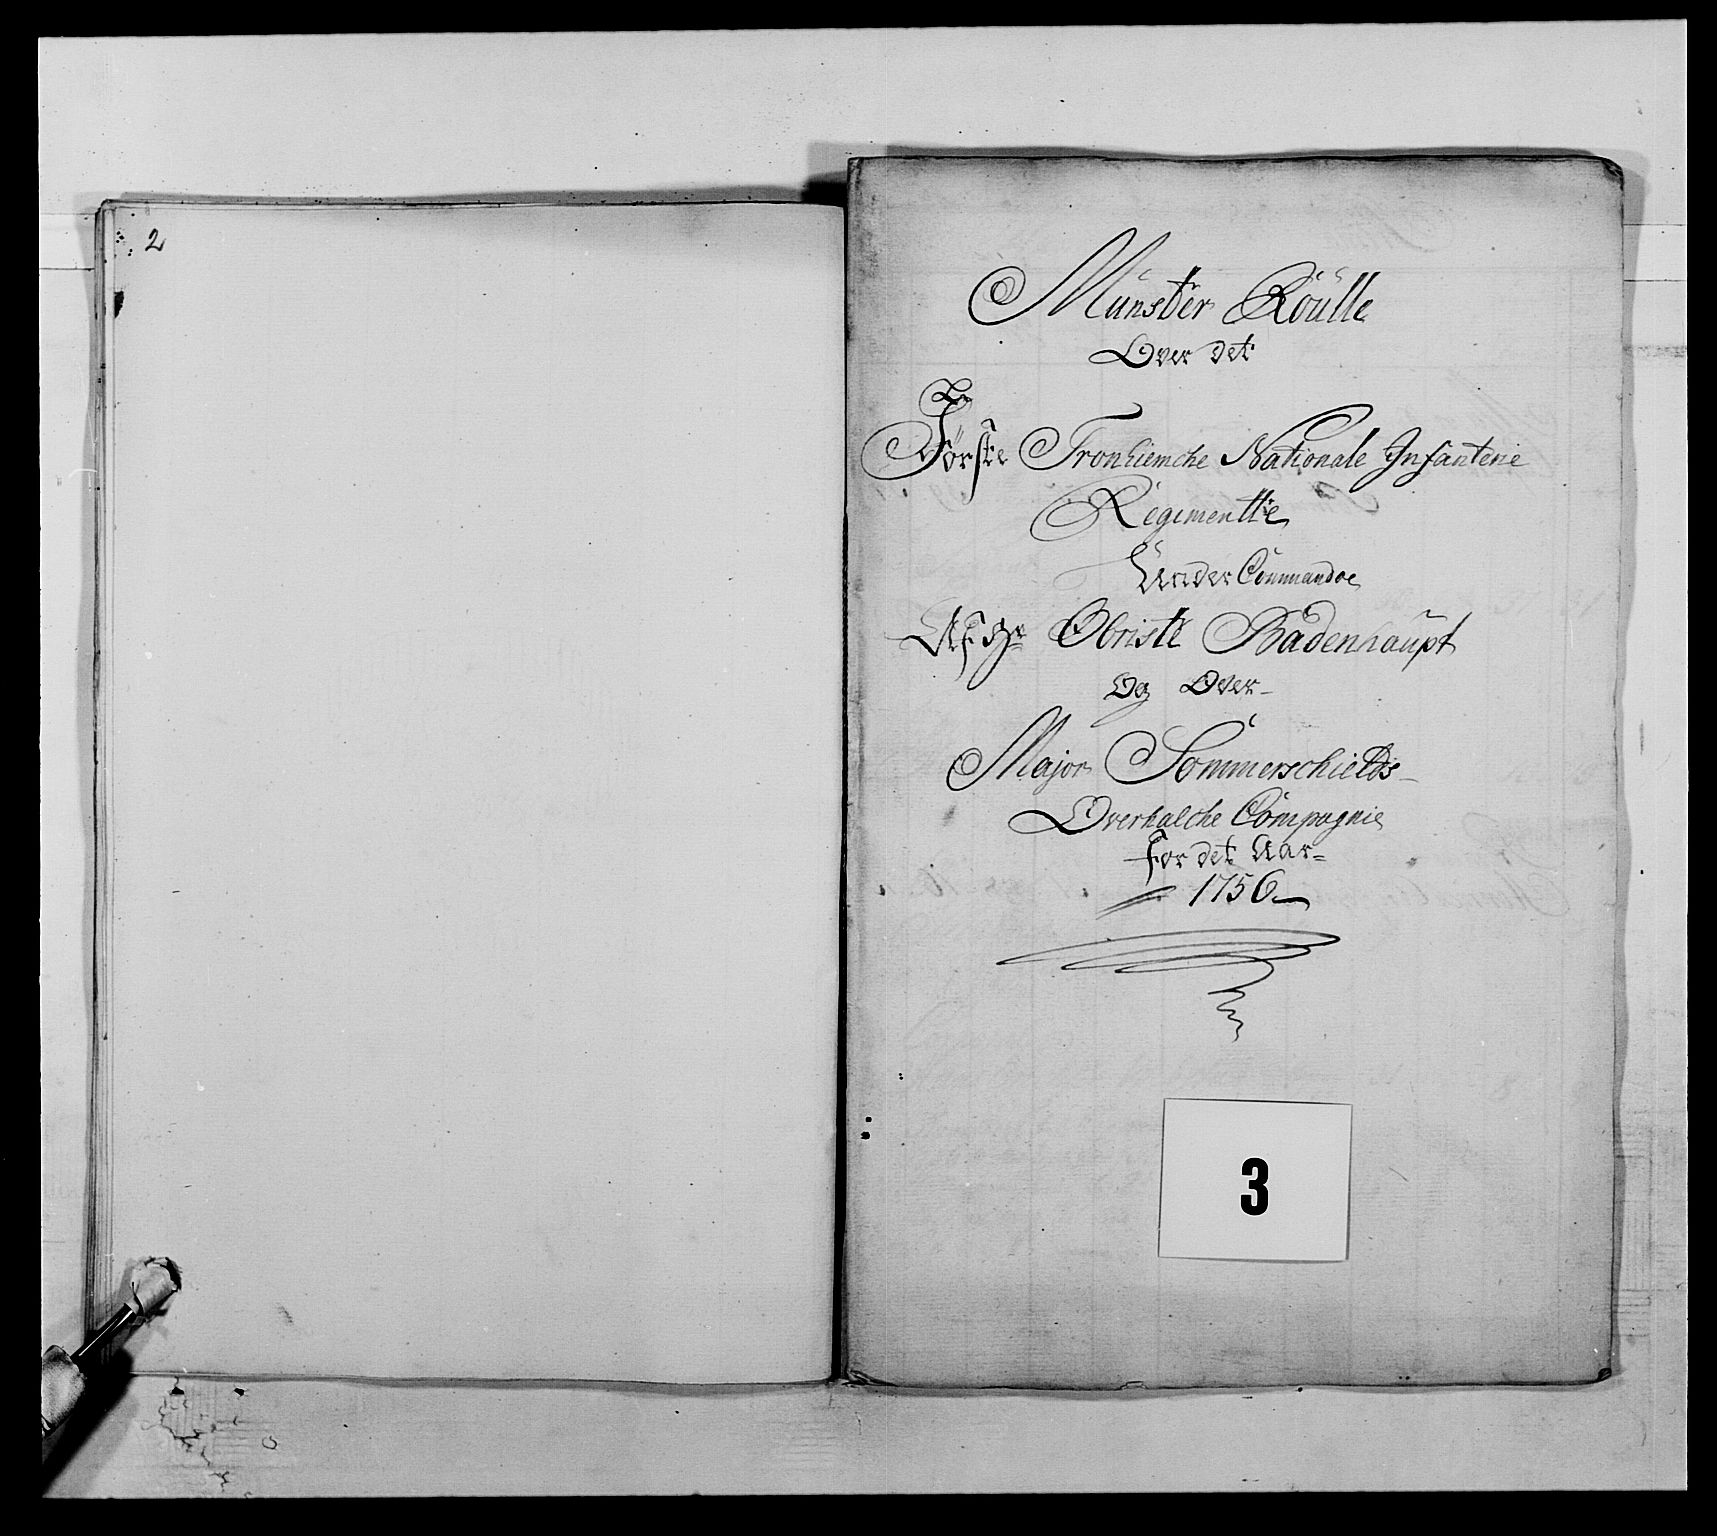 2
Münster Roülle
Over det
Første Tronhiemche Nationale Infanterie
Regimentte
Under Commandoe
Af Hr Obriste Badenhaupt
Og Over
Major Sommerschields
Overhalche Compagnie
for det Aar
1756
3